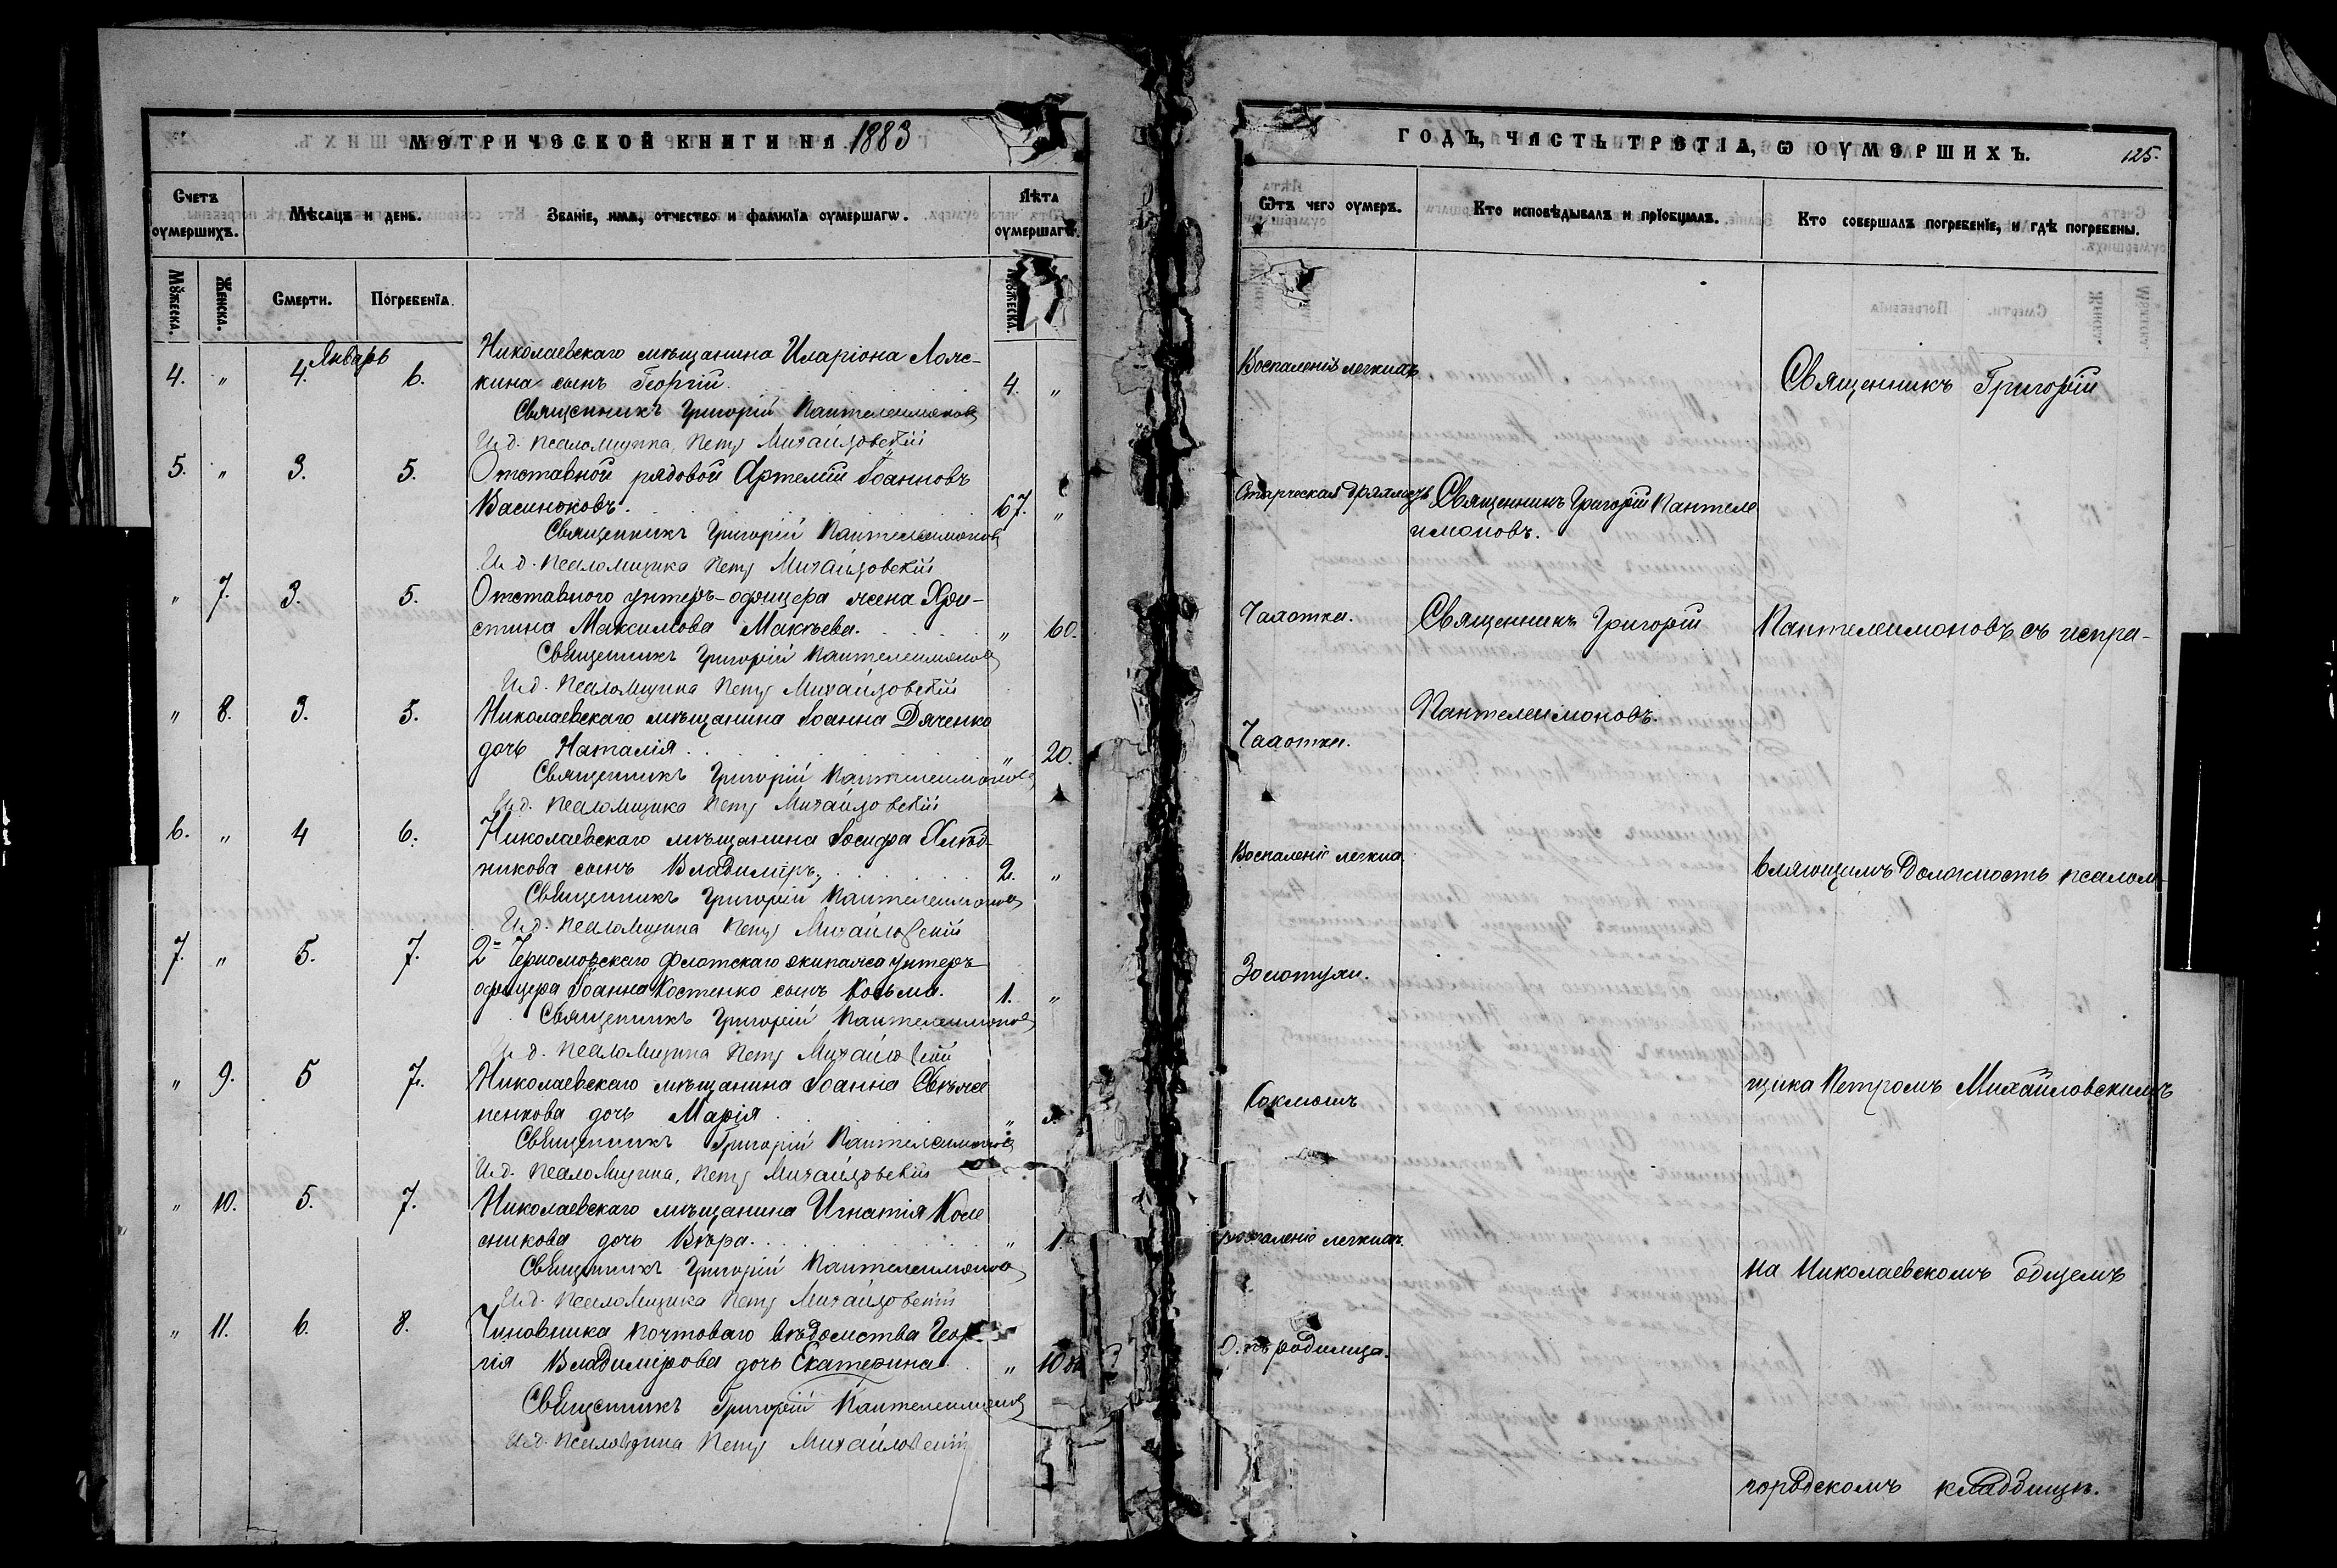 МЕТРИЧЕСКОЙ КНИГИ НА 1883
Счетъ оумершихъ.
Мѣсяцъ и день.
Званїе, имя, отчество и фамилїя оумершагѡ.
Лѣта оумершагѡ.
Мꙋжеска.
Женска.
Смерти.
Погребенїя.
Мꙋжеска.
Январь
4. " 4. 6. Николаевскаго мѣщанина Иларіона
кина сынъ Георгій. 4. "
Священникъ Григорій Пантелеимоновъ
И. д. псаломщика, Петръ Михайловскій
5. " 3. 5. Отставной рядовой Артемій Іоанновъ
Васинюковъ. 67. "
Священникъ Григорій Пантелеимоновъ
И. д. псаломщика Петръ Михайловскій
" 7. 3. 5. Отставного унтеръ-офицера жена Хри-
стина Максимова Макѣева. " 60.
Священникъ Григорій Пантелеимоновъ
И. д. псаломщика Петръ Михайловскій
" 8. 3. 5. Николаевскаго мѣщанина Іоанна Дяченко
дочь Наталія. " 20.
Священникъ Григорій Пантелеимоновъ
И. д. псаломщика Петръ Михайловскій
6. " 4 6. Николаевскаго мѣщанина Іосифа
никова сынъ Владиміръ. 2. "
Священникъ Григорій Пантелеимоновъ
И. д. псаломщика Петръ Михайловскій
7. " 5. 7. 2го Черноморскаго флотскаго экипажа унтеръ
офицера Іоанна Костенко сынъ Козьма. 1. "
Священникъ Григорій Пантелеимоновъ
И. д. псаломщика Петръ Михайловскій
" 9. 5 7. Николаевскаго мѣщанина Іоанна
ненкова дочь Марія "
Священникъ Григорій Пантелеимоновъ
И. д. псаломщика, Петръ Михайловскій
" 10. 5. 7. Николаевскаго мѣщанина Игнатія Коле
сникова дочь Вѣра. " 1.
Священникъ Григорій Пантелеимоновъ
И. д. псаломщика Петръ Михайловскій
" 11. 6. 8. Чиновника почтоваго вѣдомства Геор
гія Владимірова дочь Екатерина. " 10
Священникъ Григорій Пантелеимоновъ
И. д. псаломщика Петръ Михайловскій
ГОДЪ, ЧАСТЬ ТРЕТІА, Ѡ ОУМЕРШИХЪ. 125.
Ѿтъ чего оумеръ.
Кто исповѣдывалъ и прїобщалъ.
Кто совершалъ погребенїе, и гдѣ погребены.
Воспаленія легкихъ
Священникъ Григорій
Старческая дряхлость Священникъ Григорій Пантеле
имоновъ.
Чахотки. Священникъ Григорій Пантелеимоновъ съ испра-
Пантелеимоновъ.
Чахотки.
Воспаленіе легкихъ.
вляющимъ должность псалом
Золотухи.
щика Петромъ Михайловскимъ
Коклюшъ
Воспаленіе легкихъ.
на Николаевскомъ общемъ
родимца.
городскомъ кладбищѣ.